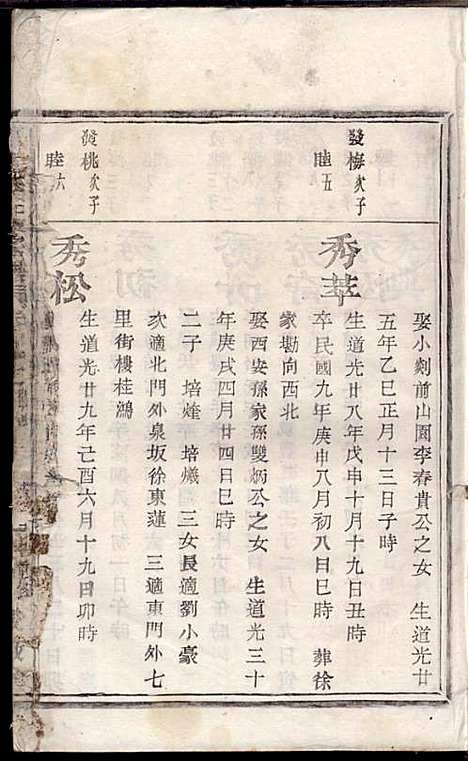 娶小剡前山園李春貴公之女 生道光廿
五年乙巳正月十三日子時
發梅次子
睦五
秀苹
生道光廿八年戊申十月十九日丑時
卒民國九年庚申八月初八日巳時 葬徐
家勘向西北
娶西安孫家孫雙炳公之女 生道光三十
年庚戌四月廿四日巳時
二子 培煃 培爔 三女長適劉小豪
次適北門外泉坂徐東蓮 三適東門外七
里街樓桂鴻
發桃次子
睦六
秀松
生道光廿九年己酉六月十九日卯時